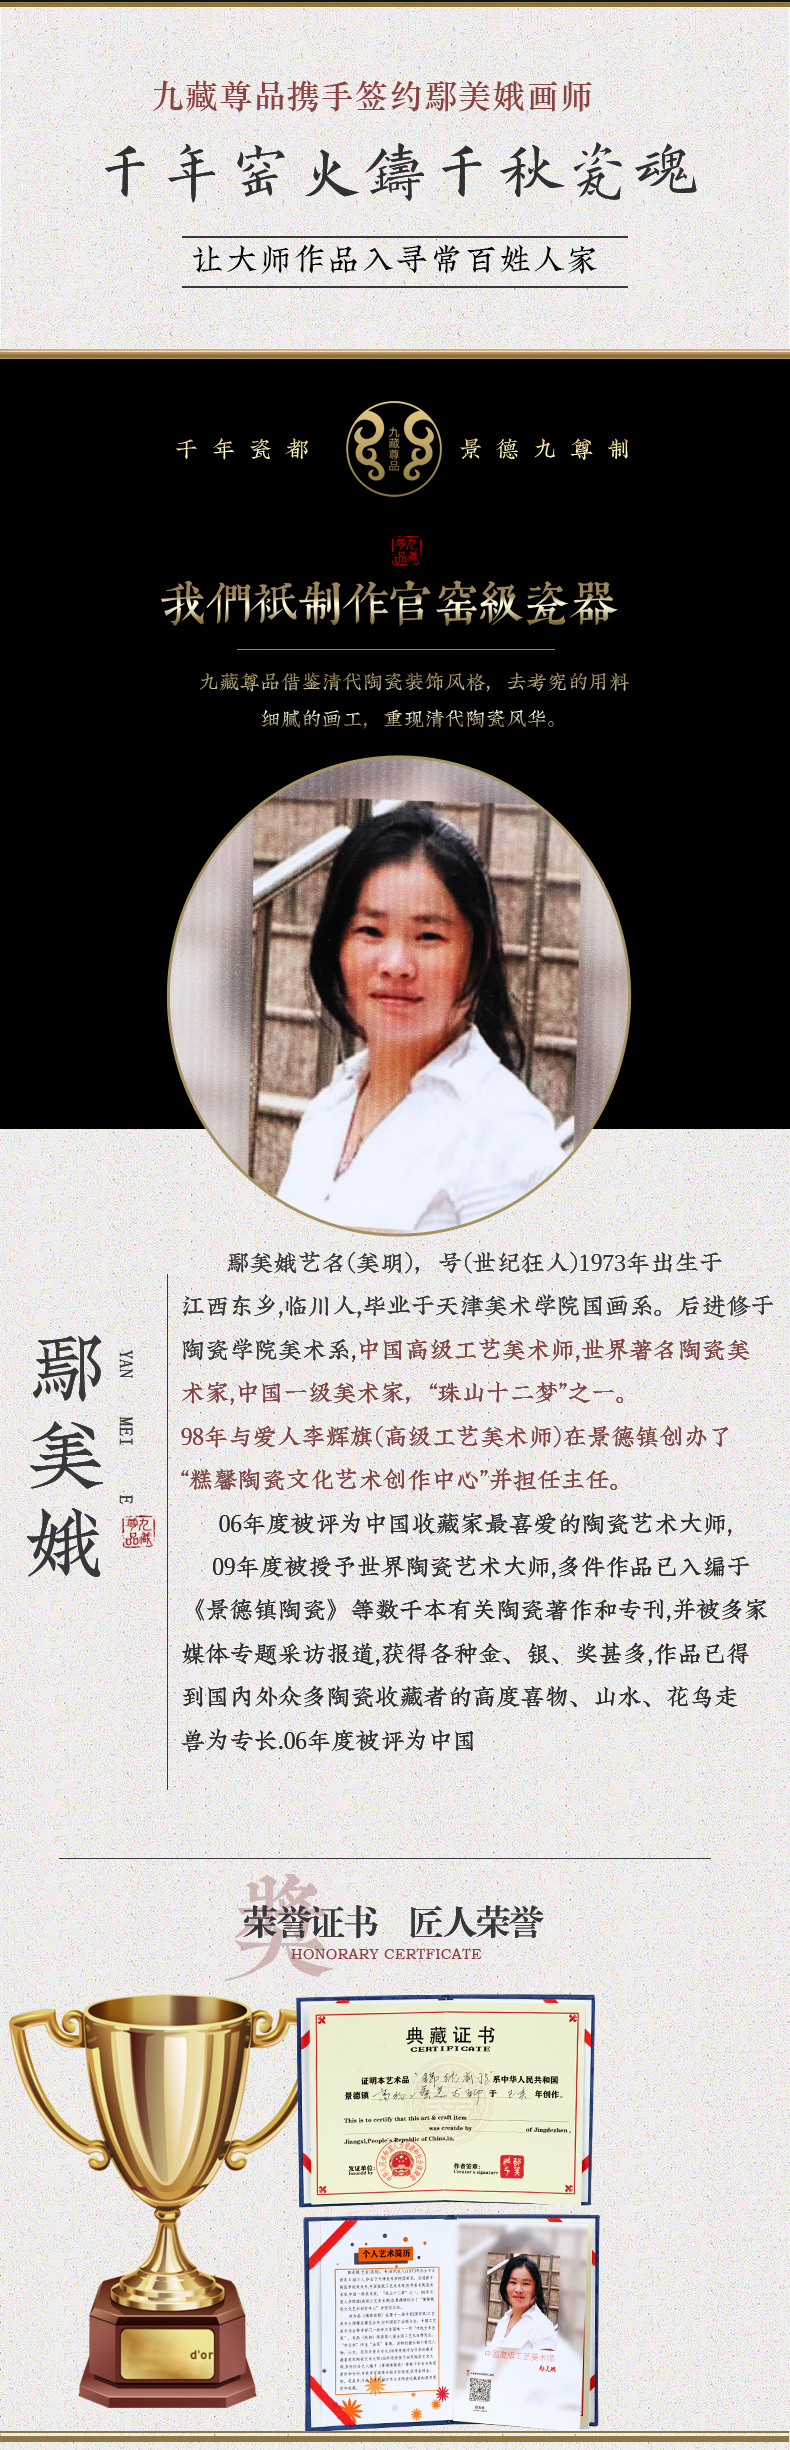 九藏尊品携手签约鄢美娥画师
千年窑火鑄千秋瓷魂
让大师作品入寻常百姓人家
千年瓷都
九藏尊品
景德九尊制
九藏尊品
我們衹制作官窑級瓷器
九藏尊品借鉴清代陶瓷装饰风格，去考究的用料
细腻的画工，重现清代陶瓷风华。
鄢美娥艺名(美明)，号(世纪狂人)1973年出生于
江西东乡,临川人,毕业于天津美术学院国画系。后进修于
陶瓷学院美术系,中国高级工艺美术师,世界著名陶瓷美
术家,中国一级美术家，“珠山十二梦”之一。
98年与爱人李辉旗(高级工艺美术师)在景德镇创办了
“糕馨陶瓷文化艺术创作中心”并担任主任。
06年度被评为中国收藏家最喜爱的陶瓷艺术大师,
09年度被授予世界陶瓷艺术大师,多件作品已入编于
《景德镇陶瓷》等数千本有关陶瓷著作和专刊,并被多家
媒体专题采访报道,获得各种金、银、奖甚多,作品已得
到国内外众多陶瓷收藏者的高度喜物、山水、花鸟走
兽为专长.06年度被评为中国
鄢美娥
YAN MEI E
九藏尊品
奖
荣誉证书 匠人荣誉
HONORARY CERTFICATE
典藏证书
CERTIFICATE
证明本艺术品
系中华人民共和国
景德镇
于
年创作。
This is to certify that this art & craft item
was creatde by
of Jingdezhen ,
Jiangxi,People's Republic of China,in.
发证单位:
Issued by
作者签章:
Creator's signature
d'or
个人艺术简历
中国高级工艺美术师